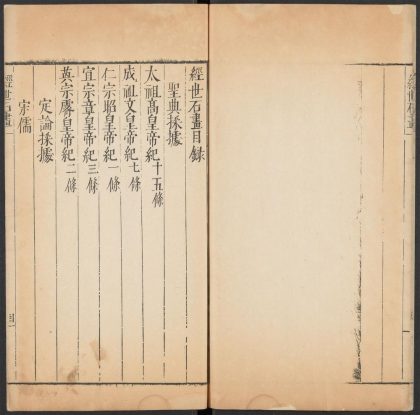 經世石畫目録
聖典採據
太祖髙皇帝紀十五條
成祖文皇帝紀七條
仁宗昭皇帝紀一條
宣宗章皇帝紀三條
真宗睿皇帝紀二條
定論採據
宗儒
經世石畫
經世石畫